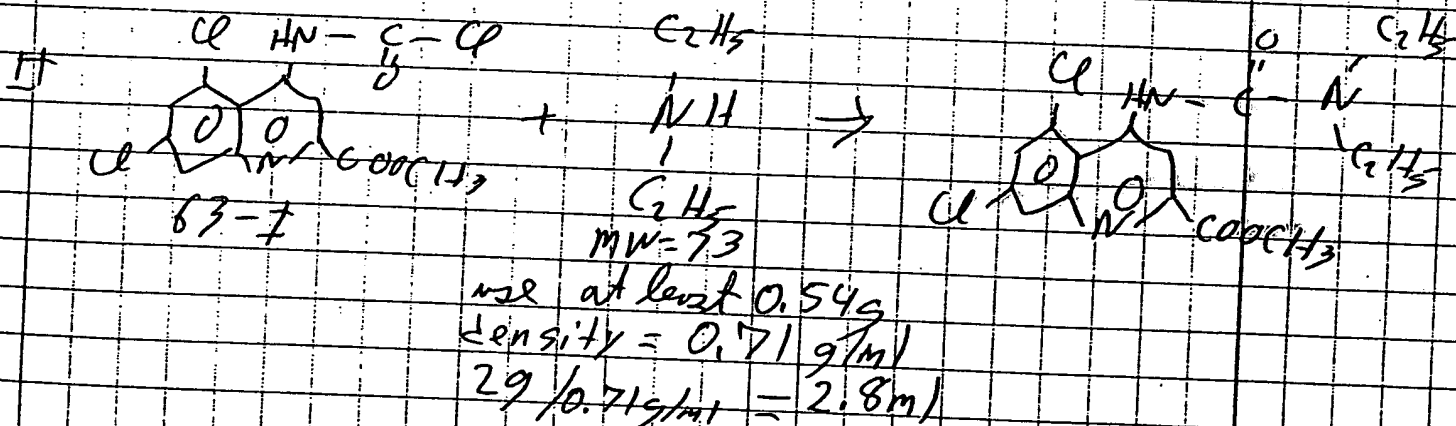 II
Cl HN - C - Cl
O
Cl N COOCH3
63-I
+
C2H5
NH
C2H5
MW=73
→
Cl HN - C - N C2H5
O
C2H5
Cl N COOCH3
use at least 0.54g
density = 0.71 g/ml
2g/0.71g/ml = 2.8ml